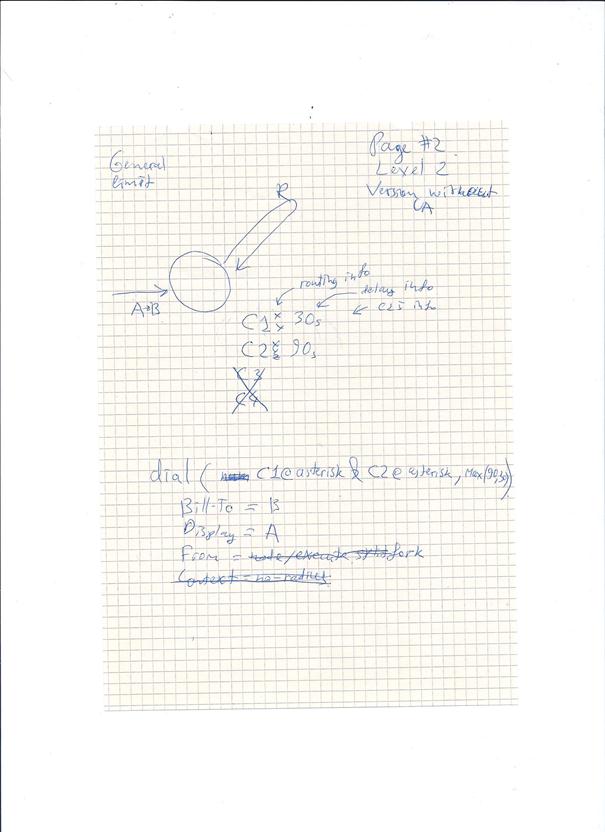 General
limit
Page #2
Level 2
Version without
CA
R
A→B
routing info
delay info
info
C1 30s
C2 90s
C3
C4
dial ( C1@asterisk & C2@asterisk, Max(90,30))
Bill-To = B
Display = A
From = node/execute fork
Context = no-radius